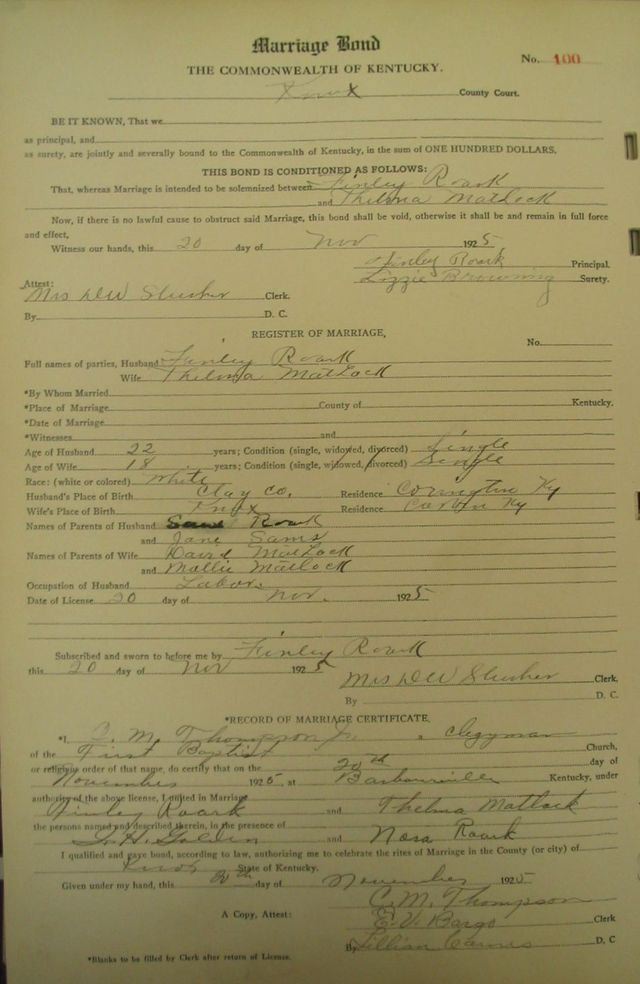 Marriage Bond
No. 100
THE COMMONWEALTH OF KENTUCKY.
Knox County Court.
BE IT KNOWN, That we
as principal, and
as surety, are jointly and severally bound to the Commonwealth of Kentucky, in the sum of ONE HUNDRED DOLLARS.
THIS BOND IS CONDITIONED AS FOLLOWS:
That, whereas Marriage is intended to be solemnized between Finley Roark
and Thelma Matlock
Now, if there is no lawful cause to obstruct said Marriage, this bond shall be void, otherwise it shall be and remain in full force
and effect,
Witness our hands, this 20 day of Nov 1925.
Finley Roark Principal.
Lizzie Browning Surety.
Attest:
Mrs DW Slusher Clerk.
By D. C.
REGISTER OF MARRIAGE,
No.
Full names of parties, Husband Finley Roark
Wife Thelma Matlock
*By Whom Married
*Place of Marriage County of Kentucky.
*Date of Marriage
*Witnesses and
Age of Husband 22 years; Condition (single, widowed, divorced) Single
Age of Wife 18 years; Condition (single, widowed, divorced) Single
Race: (white or colored) White
Husband's Place of Birth Clay Co. Residence Covington Ky
Wife's Place of Birth Knox Residence Corbin Ky
Names of Parents of Husband Roark
and Jane Sams
Names of Parents of Wife David Matlock
and Mollie Matlock
Occupation of Husband Labor.
Date of License 20 day of Nov. 1925
Subscribed and sworn to before me by Finley Roark
this 20 day of Nov 1925
Mrs DW Slusher Clerk,
By D. C.
*RECORD OF MARRIAGE CERTIFICATE.
*I, C. M. Thompson Jr a Clergyman
of the First Baptist Church,
or religious order of that name, do certify that on the 20th day of
November 1925, at Barbourville Kentucky, under
authority of the above license, I united in Marriage
Finley Roark and Thelma Matlock
the persons named and described therein, in the presence of
Golden and Nora Roark
I qualified and gave bond, according to law, authorizing me to celebrate the rites of Marriage in the County (or city) of
Knox State of Kentucky.
Given under my hand, this 20th day of November 1925
C. M. Thompson
A Copy, Attest: E. V. Bargo Clerk
By Lillian D. C
*Blanks to be filled by Clerk after return of License.